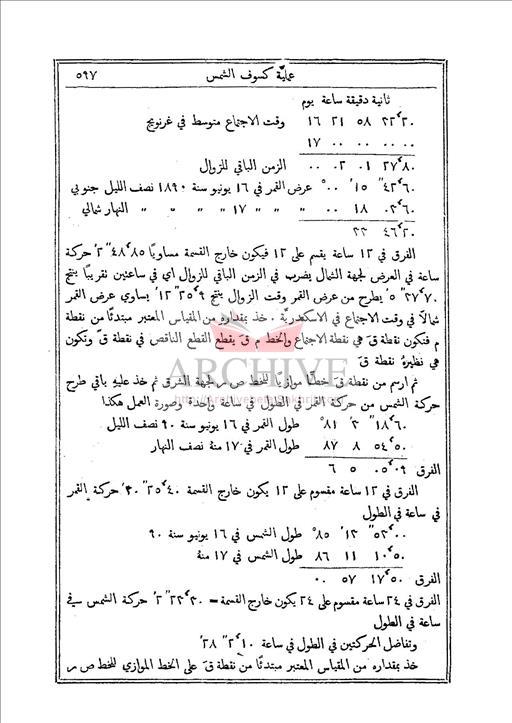 عملية كسوف الشمس ٥٩٧
ثانية دقيقة ساعة يوم
١٦ ٢١ ٥٨ ٢٢٫٢٠ وقت الاجتماع متوسط في غرنويج
١٧ ٠٠ ٠٠ ٠٠٫٠٠
٠٠ ٠٢ ٠١ ٢٧٫٨٠ الزمن الباقي للزوال
٠٠° ١٥′ ٤٢″٫٦٠ عرض القمر في ١٦ يونيو سنة ١٨٩٠ نصف الليل جنوبي
٠٠ ١٨ ٠٢٫٦٠ " " " ١٧ " " " " النهار شمالي
٢٢ ٤٦٫٢٠
الفرق في ١٢ ساعة يقسم على ١٢ فيكون خارج القسمة مساويًا ٤٨″٫٨٥ ٢′ حركة
ساعة في العرض لجهة الشمال يضرب في الزمن الباقي للزوال اي في ساعتين تقريبًا ينتج
٢٧″٫٧٠ ٥′ يطرح من عرض القمر وقت الزوال ينتج ٢٥″٫٩ ١٢′ يساوي عرض القمر
شمالًا في وقت الاجتماع في الاسكندرية . خذ بمقداره من المقياس المعتبر مبتدئًا من نقطة
م فتكون نقطة قَ هي نقطة الاجتماع والخط م قَ يقطع القطع الناقص في نقطة قً وتكون
هي نظيرة نقطة قَ
ثم ارسم من نقطة قَ خطًا موازيًا للخط ص ر لجهة الشرق ثم خذ عليه باقي طرح
حركة الشمس من حركة القمر في الطول في ساعة واحدة وصورة العمل هكذا
٨١° ٢′ ١٨″٫٦٠ طول القمر في ١٦ يونيو سنة ٩٠ نصف الليل
٨٧ ٨ ٥٤٫٥٠ طول القمر في ١٧ منهُ نصف النهار
الفرق ٠٩٫٠٥ ٥ ٦
الفرق في ١٢ ساعة مقسوم على ١٢ يكون خارج القسمة ٢٥″٫٤٠ ٣٠′ حركة القمر
في ساعة في الطول
٨٥° ١٢′ ٥٢″٫٠٠ طول الشمس في ١٦ يونيو سنة ٩٠
٨٦ ١١ ١٠٫٥٠ طول الشمس في ١٧ منهُ
الفرق ١٧٫٥٠ ٥٧ ٠٠
الفرق في ٢٤ ساعة مقسوم على ٢٤ يكون خارج القسمة = ٢٢″٫٣٠ ٢′ حركة الشمس في
ساعة في الطول
وتفاضل الحركتين في الطول في ساعة ٢″٫١٠ ٢٨′
خذ بمقداره من المقياس المعتبر مبتدئًا من نقطة قَ على الخط الموازي للخط ص ر
ARCHIVE